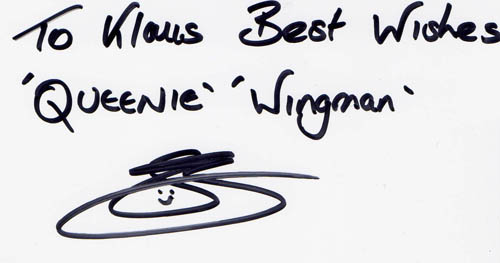 To Klaus Best Wishes
'QUEENIE' 'Wingman'